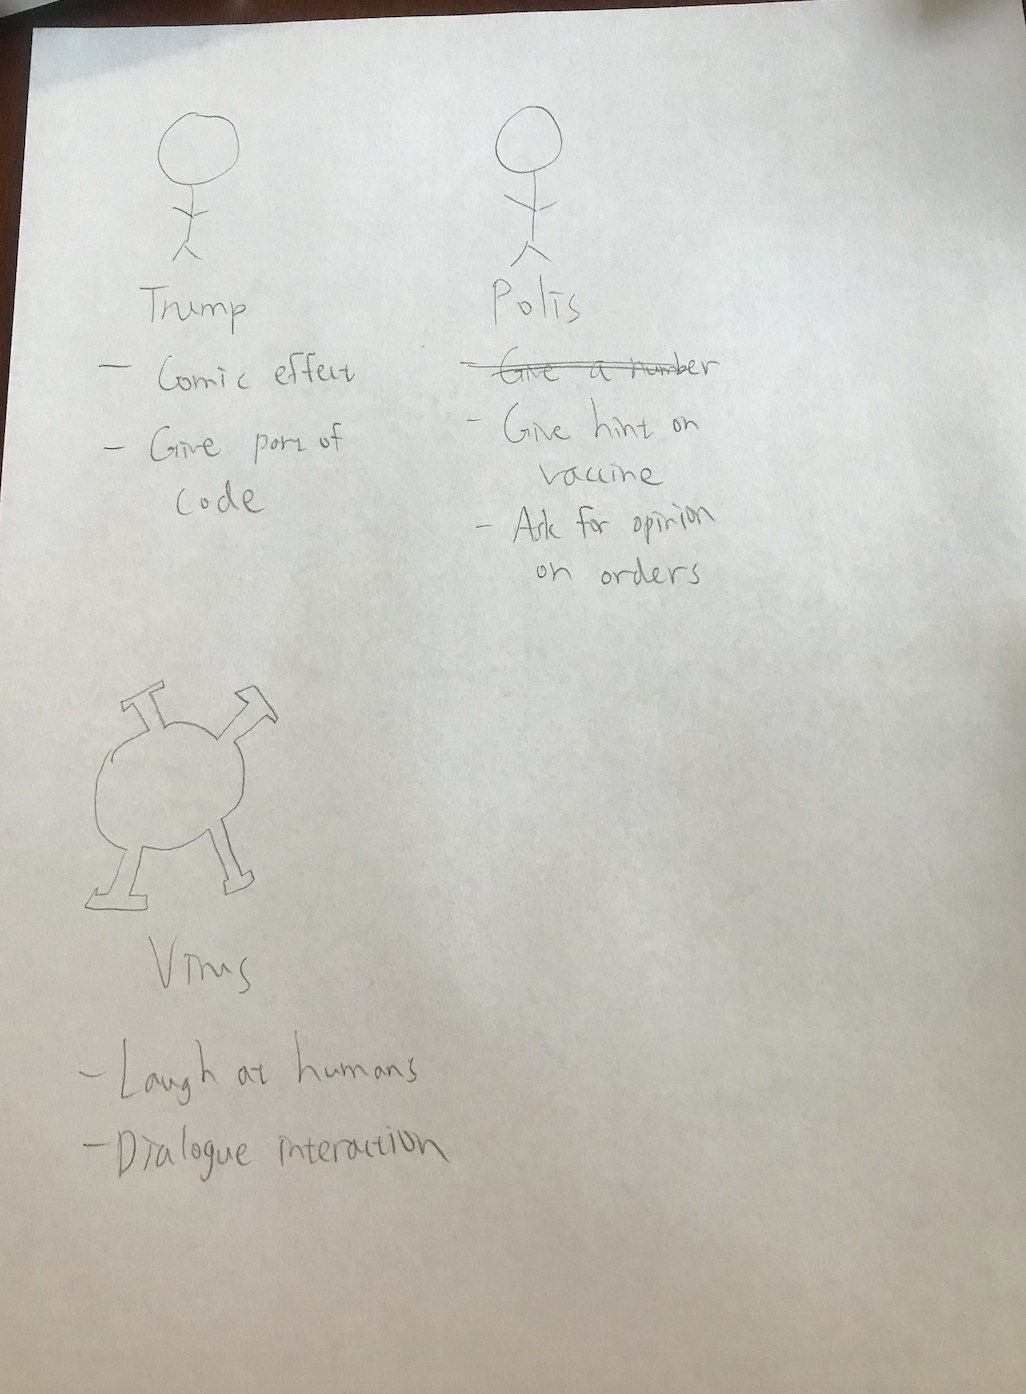 Trump
- Comic effect
- Give part of
code
Polis
- Give a number
- Give hint on
vaccine
- Ask for opinion
on orders
Virus
- Laugh at humans
- Dialogue interaction